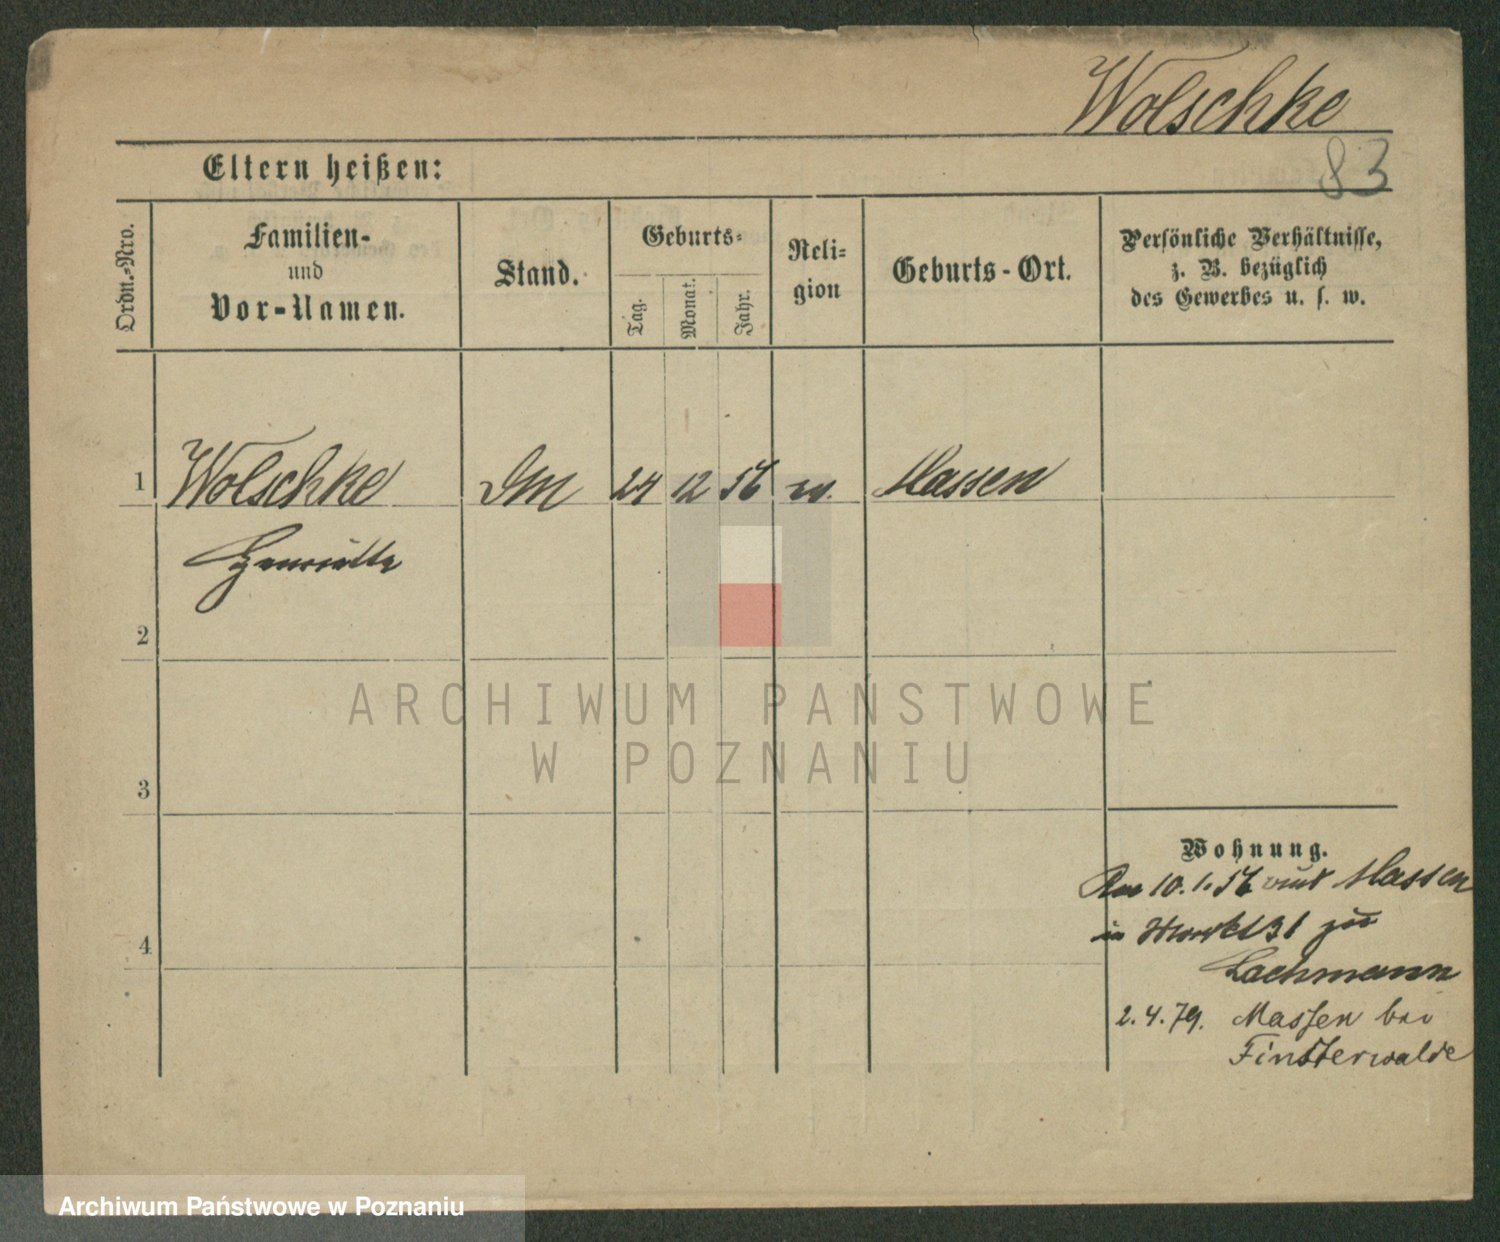 Wolschke
83
Eltern heißen:
Ordn.-Nro.
Familien-
und
Vor-Namen.
Stand.
Geburts-
Tag.
Monat.
Jahr.
Reli-
gion
Geburts-Ort.
Persönliche Verhältnisse,
z. B. bezüglich
des Gewerbes u. s. w.
1 Wolschke DM 24 12 56 ev. Massen
Henriette
2
ARCHIWUM PAŃSTWOWE
W POZNANIU
3
Wohnung.
10. 1. Massen
in Markt 31 zu
4
Lachmann
2. 4. 79. Massen bei
Finsterwalde
Archiwum Państwowe w Poznaniu